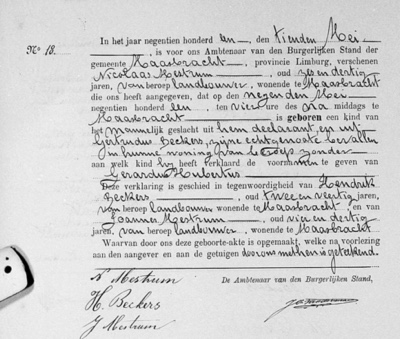 In het jaar negentien honderd een, den tienden Mei
No 18. is voor ons Ambtenaar van den Burgerlijken Stand der
gemeente Maasbracht, provincie Limburg, verschenen
Nicolaas Mestrum, oud zes en dertig
jaren, van beroep landbouwer, wonende te Maasbracht
die ons heeft aangegeven, dat op den negenden Mei
negentien honderd een, ten vier ure des na middags te
Maasbracht is geboren een kind van
het mannelijk geslacht uit hem declarant, en uit
Gertrudis Beckers, zijne echtgenoote bevallen
in hunne woning
aan welk kind hij heeft verklaard de voornamen te geven van
Gerardus Hubertus
Deze verklaring is geschied in tegenwoordigheid van Hendrik
Beckers, oud twee en veertig jaren,
van beroep landbouwer wonende te Maasbracht, en van
Joannes Mestrum, oud vier en dertig
jaren, van beroep landbouwer, wonende te Maasbracht
Waarvan door ons deze geboorte-akte is opgemaakt, welke na voorlezing
aan den aangever en aan de getuigen door ons met hen is geteekend.
N Mestrum De Ambtenaar van den Burgerlijken Stand,
H. Beckers
J Mestrum